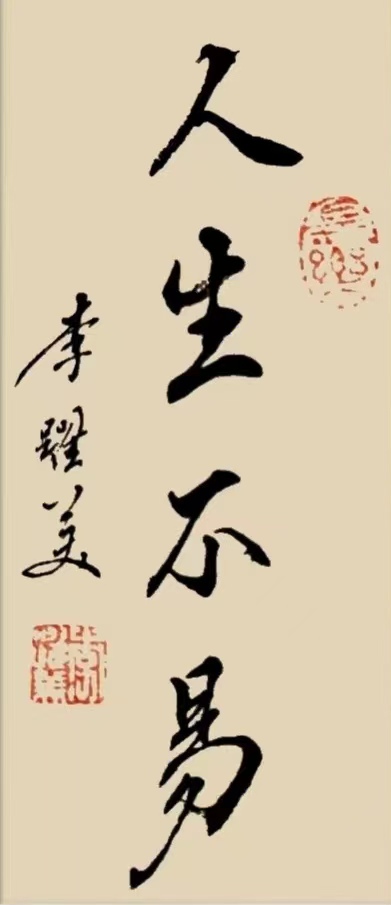 人生不易
李躍美